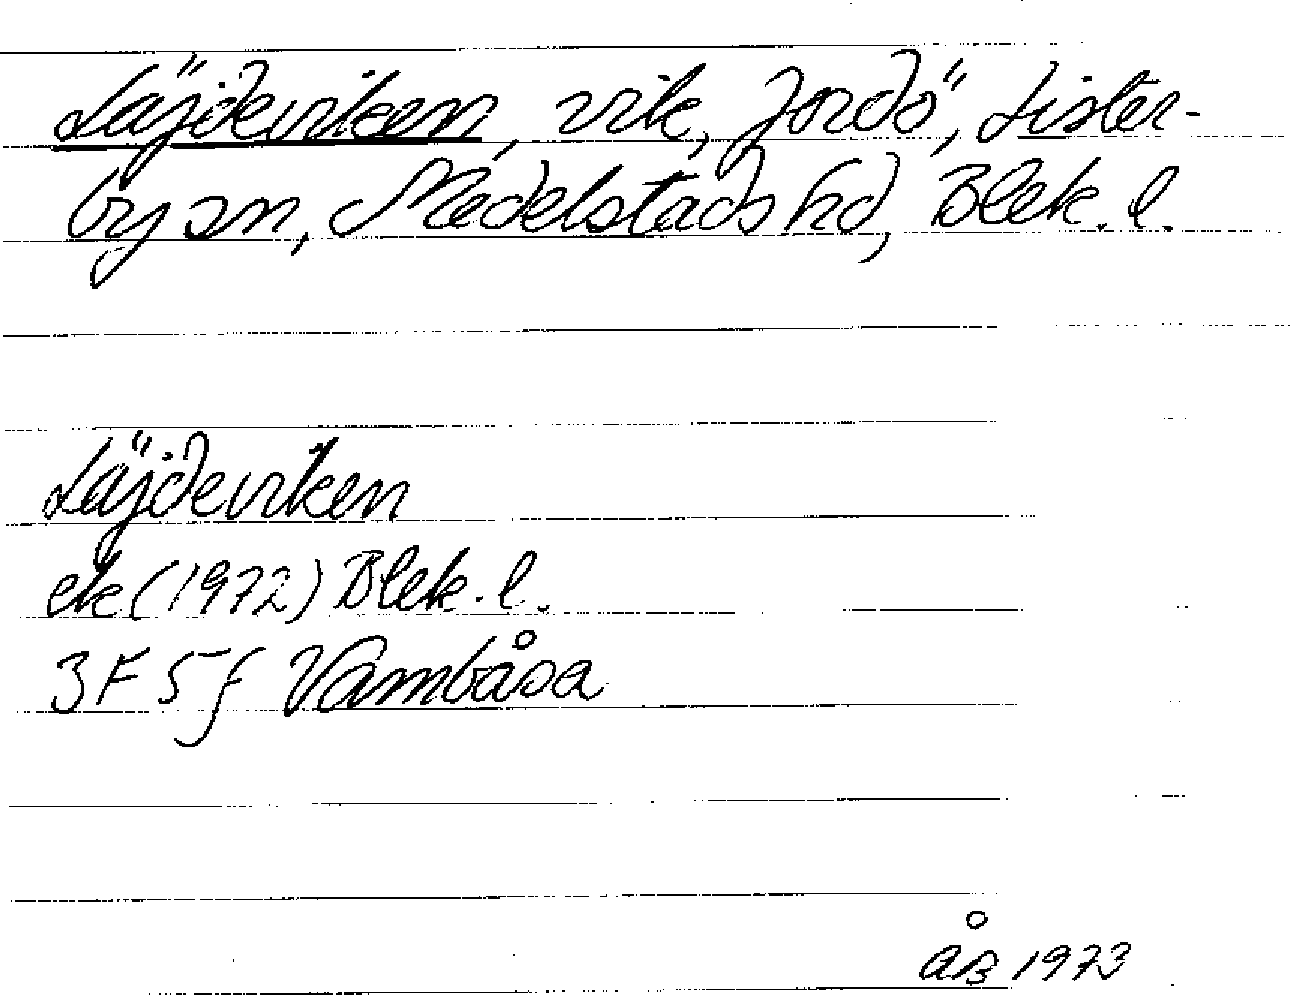 Läjdeviken, vik, Jordö, Lister-
by sn, Medelstads hd, Blek. l.
Läjdeviken
ek (1972) Blek. l.
3F 5f Vambåsa
ÅB 1973